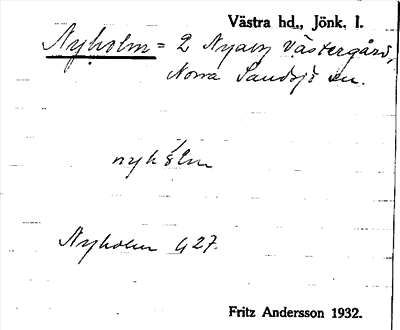 Västra hd., Jönk. l.
Nyholm = 2 Nyary Västergård,
Norra Sandsjö sn.
nyhólm
Nyholm G 27.
Fritz Andersson 1932.